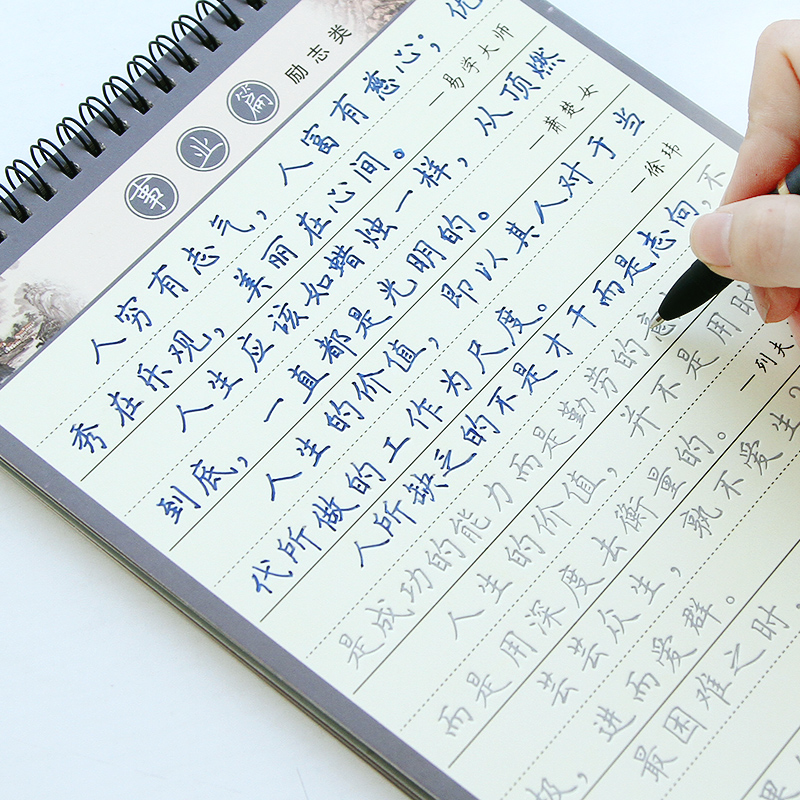 励志类
事业篇
人穷有志气，人富有慈心；优
秀在乐观，美丽在心间。
—易学大师
人生应该如蜡烛一样，从顶燃
到底，一直都是光明的。
—萧楚女
人生的价值，即以其人对于当
代所做的工作为尺度。
—徐玮
人所缺乏的不是才干而是志向，不
是成功的能力而是勤劳的意
人生的价值，并不是用时
而是用深度去衡量的。
—列夫
芸芸众生，孰不爱生？
极，进而爱群。
最困难之时，